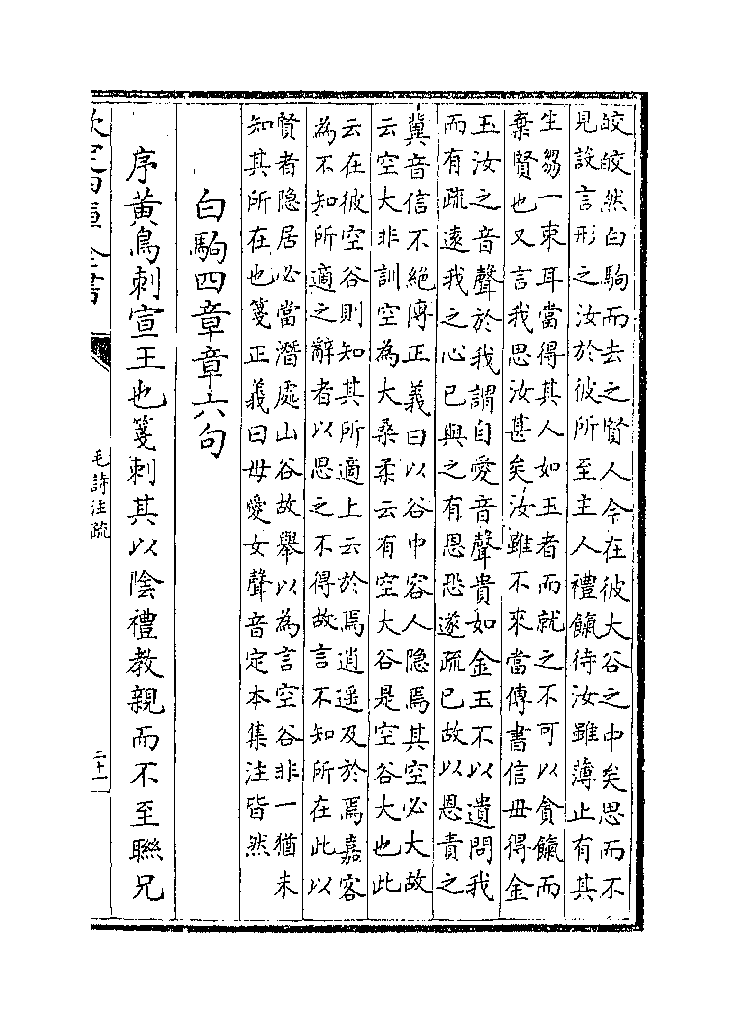 皎皎然白駒而去之賢人今在彼大谷之中矣思而不
見設言形之汝於彼所至主人禮餼待汝雖薄止有其
生芻一束耳當得其人如玉者而就之不可以貪餼而
棄賢也又言我思汝甚矣汝雖不來當傳書信毋得金
玉汝之音聲於我謂自愛音聲貴如金玉不以遺問我
而有疏遠我之心已與之有恩恐遂疏已故以恩責之
冀音信不絕傳正義曰以谷中容人隱焉其空必大故
云空大非訓空為大桑柔云有空大谷是空谷大也此
云在彼空谷則知其所適上云於焉逍遥及於焉嘉客
為不知所適之辭者以思之不得故言不知所在此以
賢者隱居必當潛處山谷故舉以為言空谷非一猶未
知其所在也箋正義曰毋愛女聲音定本集注皆然
白駒四章章六句
序黃鳥刺宣王也箋刺其以陰禮教親而不至聯兄
欽定四庫全書
毛詩注疏
二十一